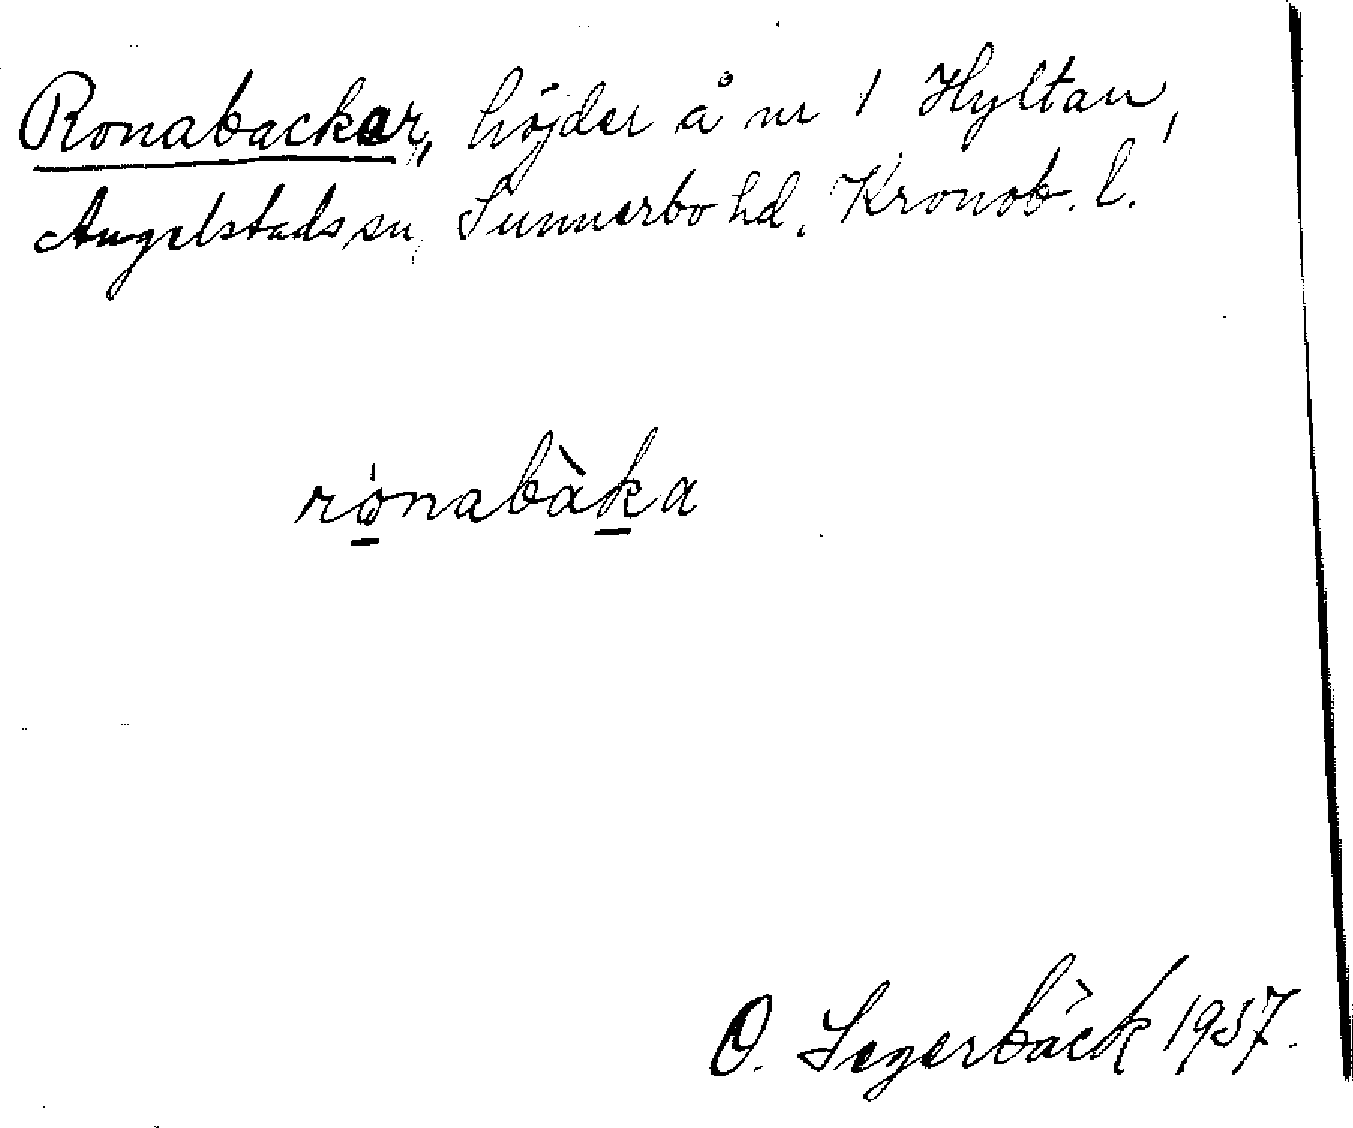 Ronabackar, höjder å nr 1 Hyltan,
Angelstads sn, Sunnerbo hd. Kronob. l.
rónabàka
O. Segerbäck 1957.